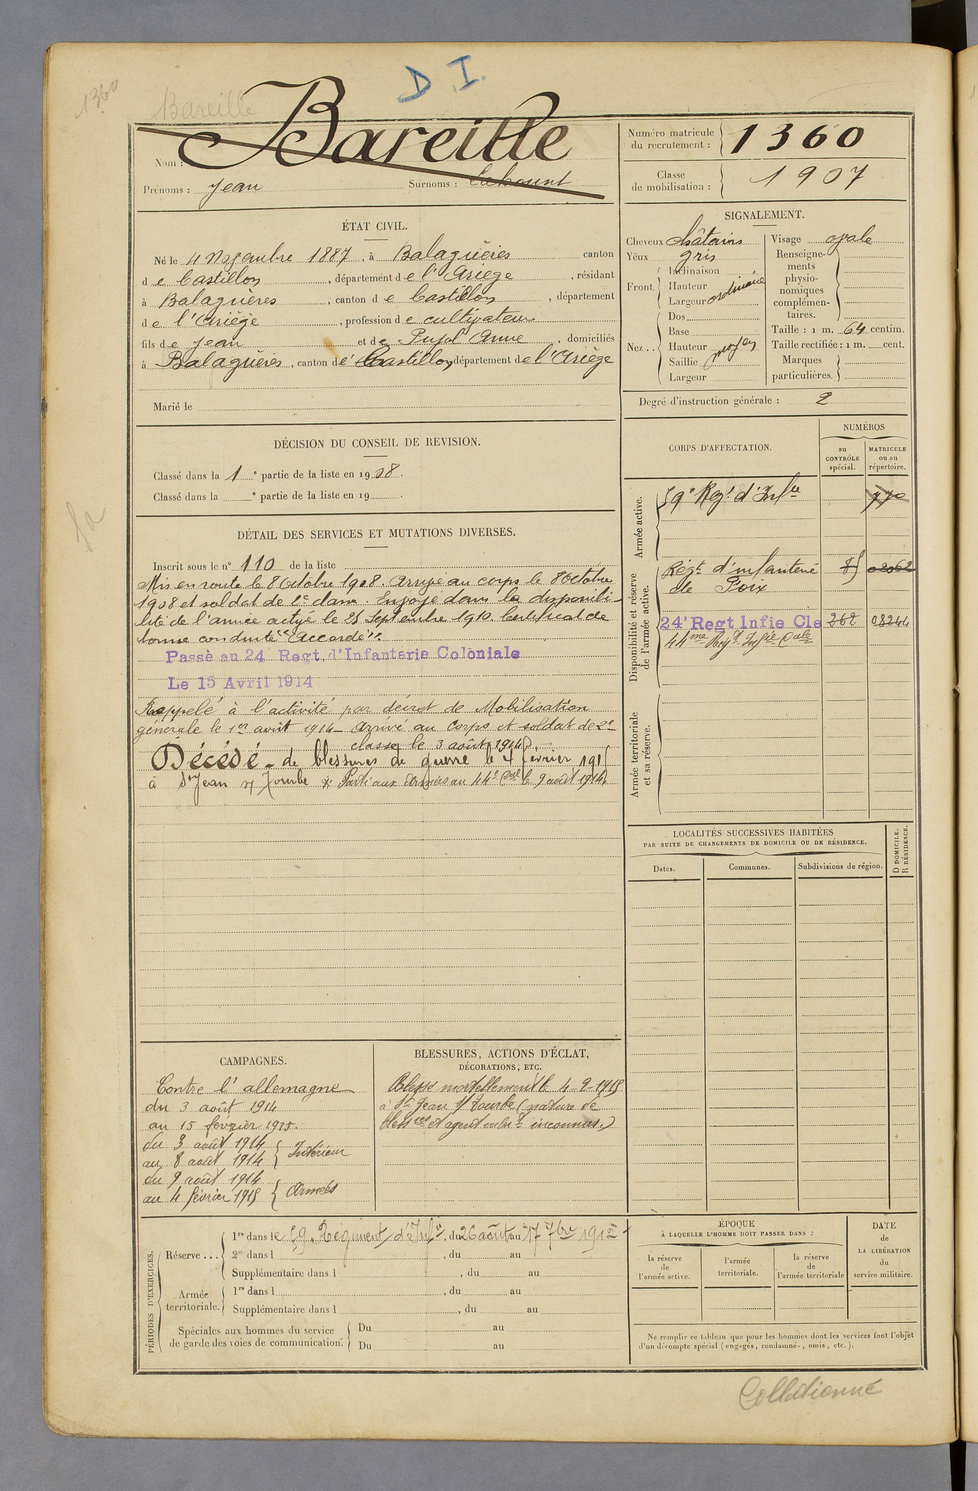 1360
Bareille
D I.
Bareille
Nom :
Prénoms : Jean Surnoms :
Numéro matricule du recrutement : 1360
Classe de mobilisation : 1907
ÉTAT CIVIL.
Né le 4 Novembre 1887, à Balaguères canton
de Castillon, département de l'Ariège, résidant
à Balaguères, canton de Castillon, département
de l'Ariège, profession de cultivateur
fils de Jean et de Pujol Anne, domiciliés
à Balaguères, canton de Castillon département de l'Ariège
Marié le
SIGNALEMENT.
Cheveux châtains
Yeux gris
Front. Inclinaison
Hauteur
Largeur ordinaire
Nez.. Dos
Base
Hauteur moyen
Saillie
Largeur
Visage ovale
Renseignements physionomiques complémentaires.
Taille : 1 m. 64 centim.
Taille rectifiée : 1 m. cent.
Marques particulières.
Degré d'instruction générale : 2
DÉCISION DU CONSEIL DE REVISION.
Classé dans la 1e partie de la liste en 1908.
Classé dans la e partie de la liste en 19
DÉTAIL DES SERVICES ET MUTATIONS DIVERSES.
Inscrit sous le n° 110 de la liste
Mis en route le 8 Octobre 1908. Arrivé au corps le 8 Octobre
1908 et soldat de 2e classe. Envoyé dans la disponibi
lité de l'armée active le 25 Septembre 1910. Certificat de
bonne conduite "Accordé".
Passé au 24 Regt. d'Infanterie Coloniale
Le 15 Avril 1914
Rappelé à l'activité par décret de Mobilisation
générale le 1er août 1914 - Arrivé au Corps et soldat de 2e
classe le 3 août 1914.
Décédé - de blessures de guerre le 4 février 1915
à St Jean s/ Tourbe Parti aux Armées au 44e Cal le 9 août 1914
CORPS D'AFFECTATION.
NUMÉROS
au CONTRÔLE spécial.
MATRICULE ou au répertoire.
Armée active.
59e Régt d'Infie 770
Disponibilité et réserve de l'armée active.
Régt d'infanterie
de Foix
24e Regt Infie Cle 262 08244
44me Régt Infie Cale
Armée territoriale et sa réserve.
LOCALITÉS SUCCESSIVES HABITÉES
PAR SUITE DE CHANGEMENTS DE DOMICILE OU DE RÉSIDENCE.
Dates. Communes. Subdivisions de région.
D DOMICILE. R RÉSIDENCE.
CAMPAGNES.
Contre l'allemagne
du 3 août 1914
au 15 février 1915.
du 3 août 1914
au 8 août 1914 Intérieur
du 9 août 1914
au 4 février 1915 Armées
BLESSURES, ACTIONS D'ÉCLAT,
DÉCORATIONS, ETC.
Blessé mortellement le 4-2-1915
à St Jean s/ Tourbe (nature de
bless res et agent vulnt inconnus.)
PÉRIODES D'EXERCICES.
Réserve ... 1re dans le 59 Régiment d'Infie, du 26 août au 17 7bre 1912
2e dans l , du au
Supplémentaire dans l , du au
Armée territoriale. 1re dans l , du au
Supplémentaire dans l , du au
Spéciales aux hommes du service de garde des voies de communication. Du au
Du au
ÉPOQUE
À LAQUELLE L'HOMME DOIT PASSER DANS :
la réserve de l'armée active.
l'armée territoriale.
la réserve de l'armée territoriale
DATE
de
LA LIBÉRATION
du
service militaire.
Ne remplir ce tableau que pour les hommes dont les services font l'objet
d'un décompte spécial (engagés, condamnés, omis, etc.).
Collationné